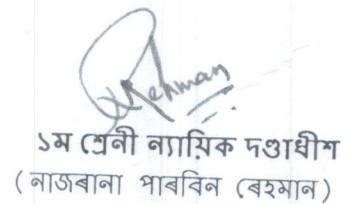 Rehman
১ম শ্ৰেনী ন্যায়িক দণ্ডাধীশ
( নাজৰানা পাৰবিন (ৰহমান)